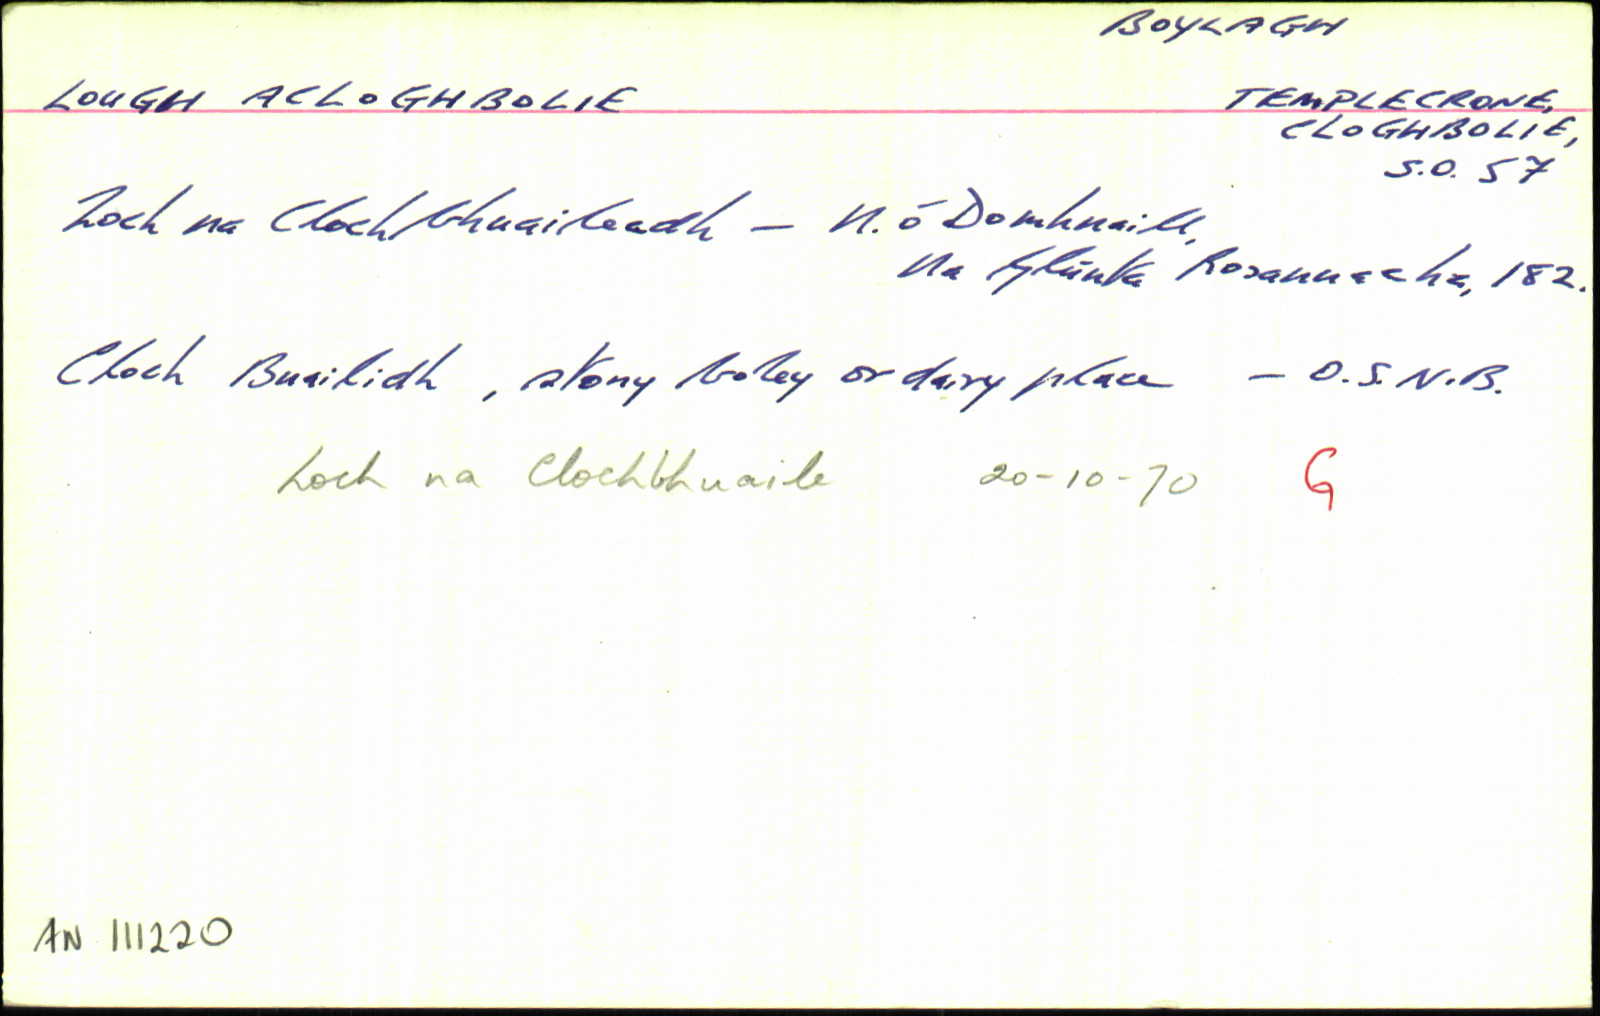 BOYLAGH
LOUGH ACLOGHBOLIE
TEMPLECRONE,
CLOGHBOLIE,
S.O. 57
Loch na Clochbhuaileadh — N. Ó Domhnaill,
Na Glúnta Rosannacha, 182.
Cloch Buailidh, stony boley or dairy place — O.S.N.B.
Loch na Clochbhuaile 20-10-70 G
AN 111220